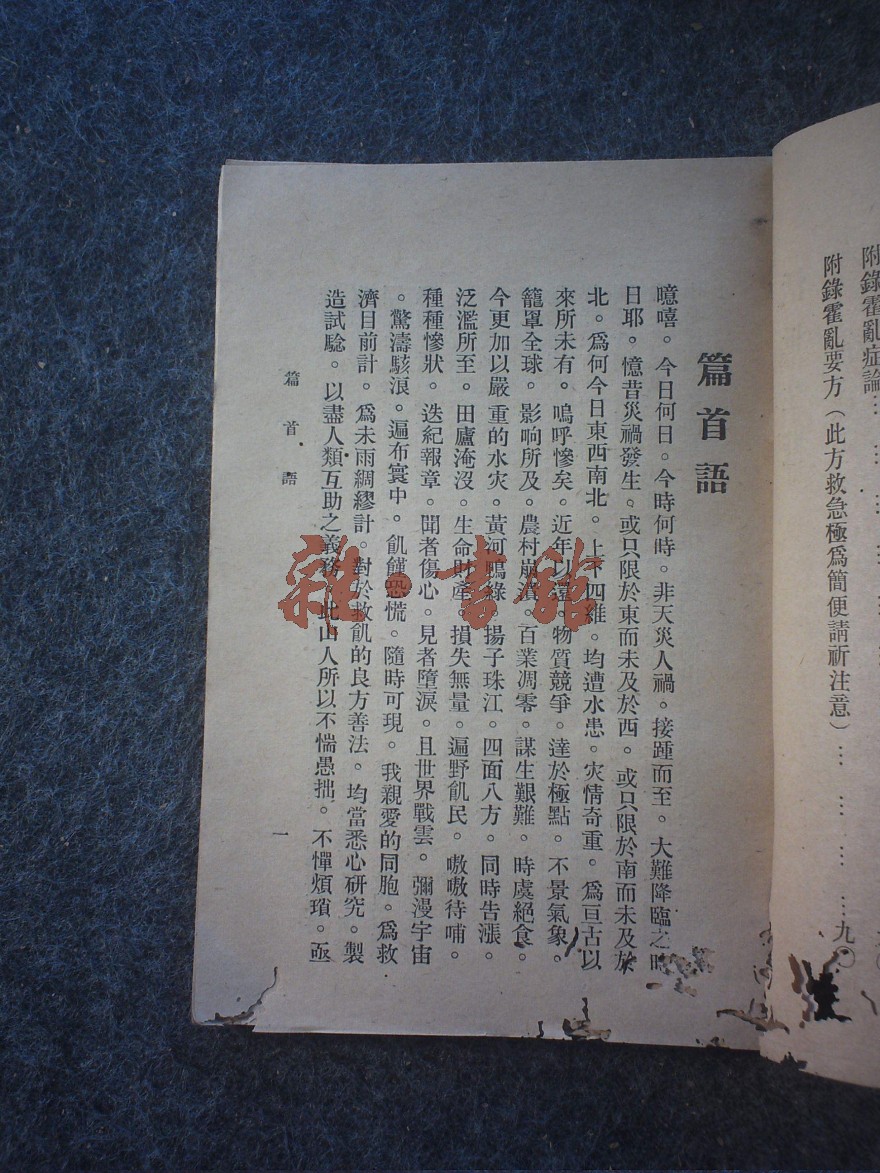 附錄霍亂症論……………
附錄霍亂要方（此方救急極爲簡便請祈注意）…………九〇
篇首語
噫嘻。今日何日。今時何時。非天災人禍。接踵而至。大難降臨之時
日耶。憶昔災禍發生。或只限於東而未及於西。或只限於南而未及於
北。爲何今日東西南北。上下四維。均遭水患。灾情奇重。爲亘古以
來所未有。嗚呼慘矣。近年以還。物質競爭。達於極點。不景氣象。
籠罩全球。影响所及。農村崩潰。百業凋零。謀生艱難。時虞絕食。
今更加以嚴重的水灾。黃河鴨綠。揚子珠江。四面八方。同時告漲。
泛濫所至。田廬淹沒。生命財產。損失無量。遍野飢民。嗷嗷待哺。
種種慘狀。迭紀報章。聞者傷心。見者墮淚。且世界戰雲。彌漫宇宙
。驚濤駭浪。遍布寰中。飢饉恐慌。隨時可現。我親愛的同胞。爲救
濟目前計。爲未雨綢繆計。對於救飢的良方善法。均當悉心研究。製
造試驗。以盡人類互助之義務。此山人所以不惴愚拙。不憚煩瑣。亟
篇首語
一
雜·書館